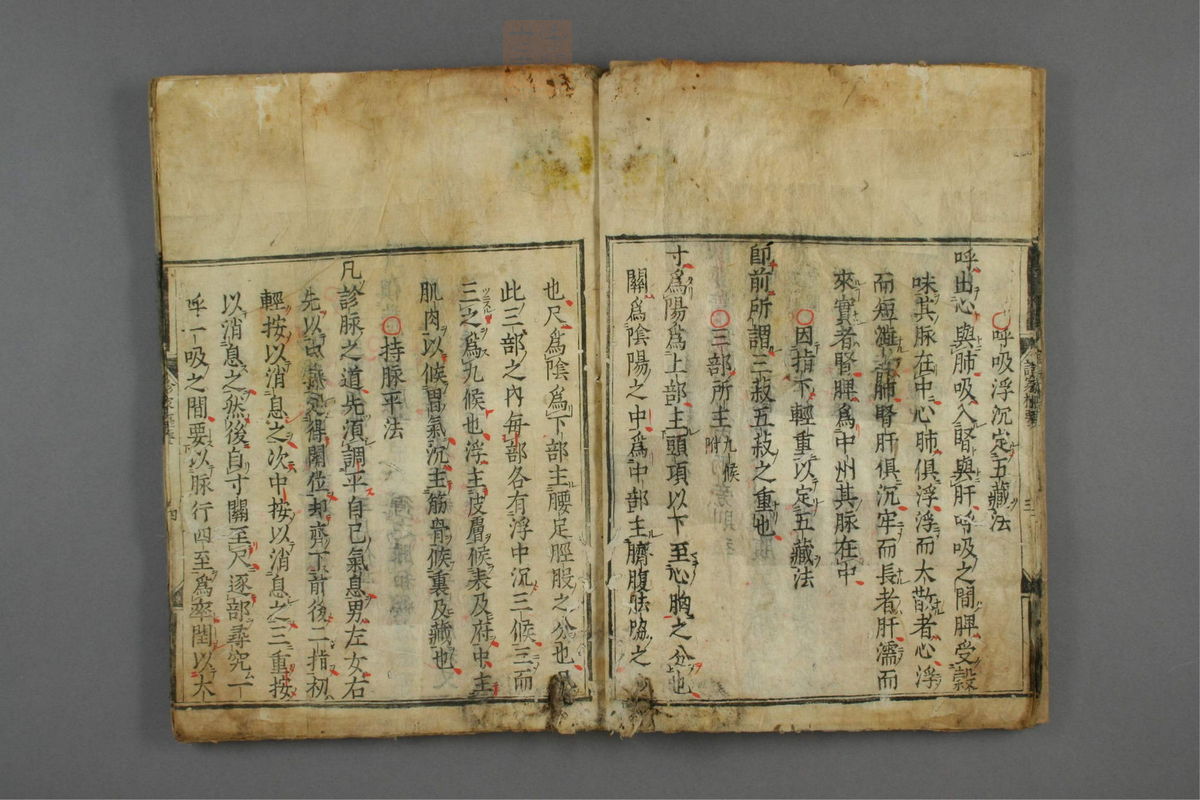 ○呼吸浮沉定五藏法
呼出心與肺吸入腎與肝呼吸之間脾受穀
味其脉在中心肺俱浮浮而大散者心浮
而短濇者肺腎肝俱沉牢而長者肝濡而
來實者腎脾爲中州其脉在中
○因指下輕重以定五藏法
卽前所謂三菽五菽之重也
○三部所主九候附
寸爲陽爲上部主頭項以下至心胸之分也
關爲陰陽之中爲中部主臍腹胠脇之
也尺爲陰爲下部主腰足脛股之分也凡
此三部之內每部各有浮中沉三候三而
三之爲九候也浮主皮膚候表及府中主
肌肉以候胃氣沉主筋骨候裏及藏也
○持脉平法
凡診脉之道先須調平自己氣息男左女右
先以中指定得關位却齊下前後二指初
輕按以消息之次中按以消息之三重按
以消息之然後自寸關至尺逐部尋究一
呼一吸之間要以脉行四至爲率閏以太